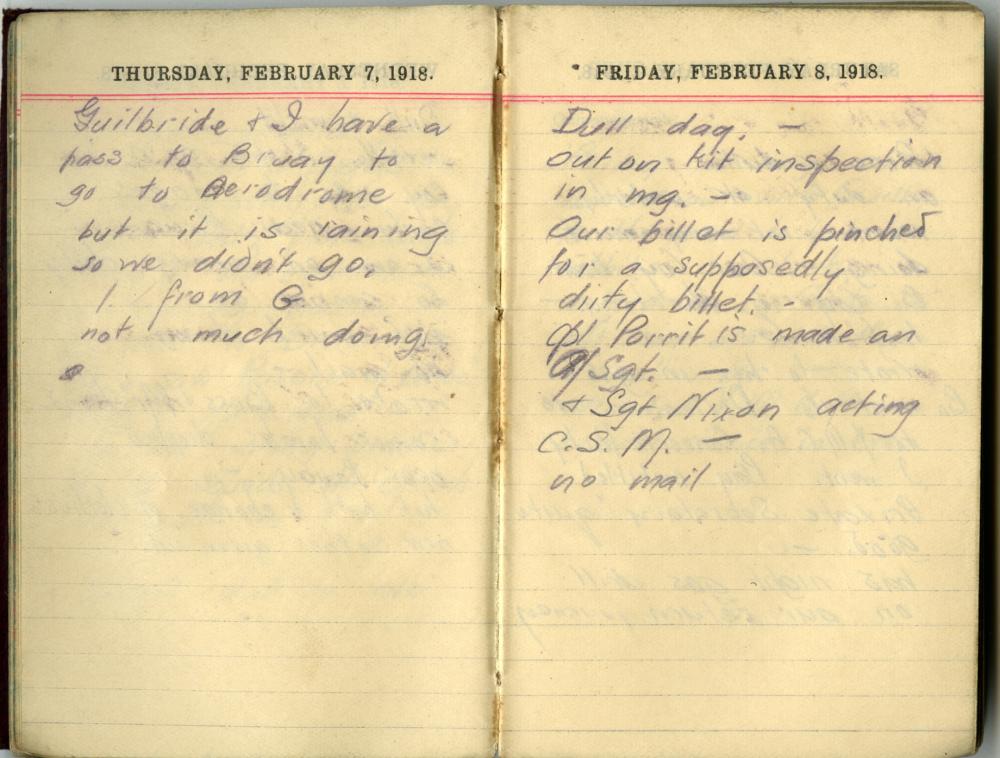 THURSDAY, FEBRUARY 7, 1918.
Guilbride & I have a
pass to Bruay to
go to Aerodrome
but it is raining
so we didn't go.
1. from G
not much doing.
FRIDAY, FEBRUARY 8, 1918.
Dull day. —
out on kit inspection
in mg. —
Our billet is pinched
for a supposedly
dirty billet. -
Cpl Porrit is made an
A/Sgt. —
& Sgt. Nixon acting
C.S.M. —
no mail